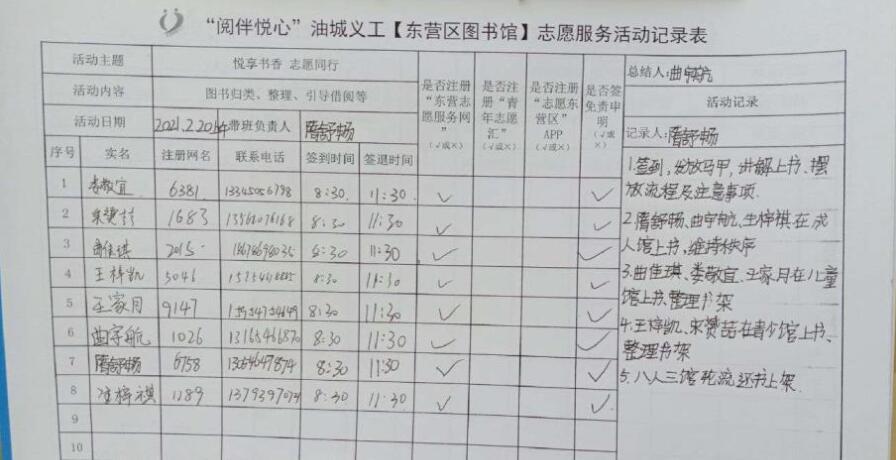 “阅伴悦心”油城义工【东营区图书馆】志愿服务活动记录表
活动主题 悦享书香 志愿同行
活动内容 图书归类、整理、引导借阅等
活动日期 2021.2.20 带班负责人 隋舒畅
是否注册“东营志愿服务网”(√或×)
是否注册“青年志愿汇”(√或×)
是否注册“志愿东营区”APP(√或×)
是否签免责申明(√或×)
总结人:曲宇航
活动记录
记录人:隋舒畅
序号 实名 注册网名 联系电话 签到时间 签退时间
1 娄敬宜 6381 13345056798 8:30 11:30 √ √
2 1683 8:30 11:30 √ √
3 曲佳琪 2015 8:30 11:30 √ √
4 王梓凯 5046 8:30 11:30 √ √
5 王家月 9147 8:30 11:30 √ √
6 曲宇航 1026 8:30 11:30 √ √
7 隋舒畅 6758 8:30 11:30 √ √
8 1289 8:30 11:30 √ √
9
10
1.签到,发放马甲,讲解上书、摆
放流程及注意事项.
2.隋舒畅、曲宇航、梓祺在成
人馆上书,维持秩序
3.曲佳琪、娄敬宜、王家月在儿童
馆上书、整理书架
4.王梓凯、宋赟喆在青少馆上书、
整理书架
5.八人三馆轮流还书上架.